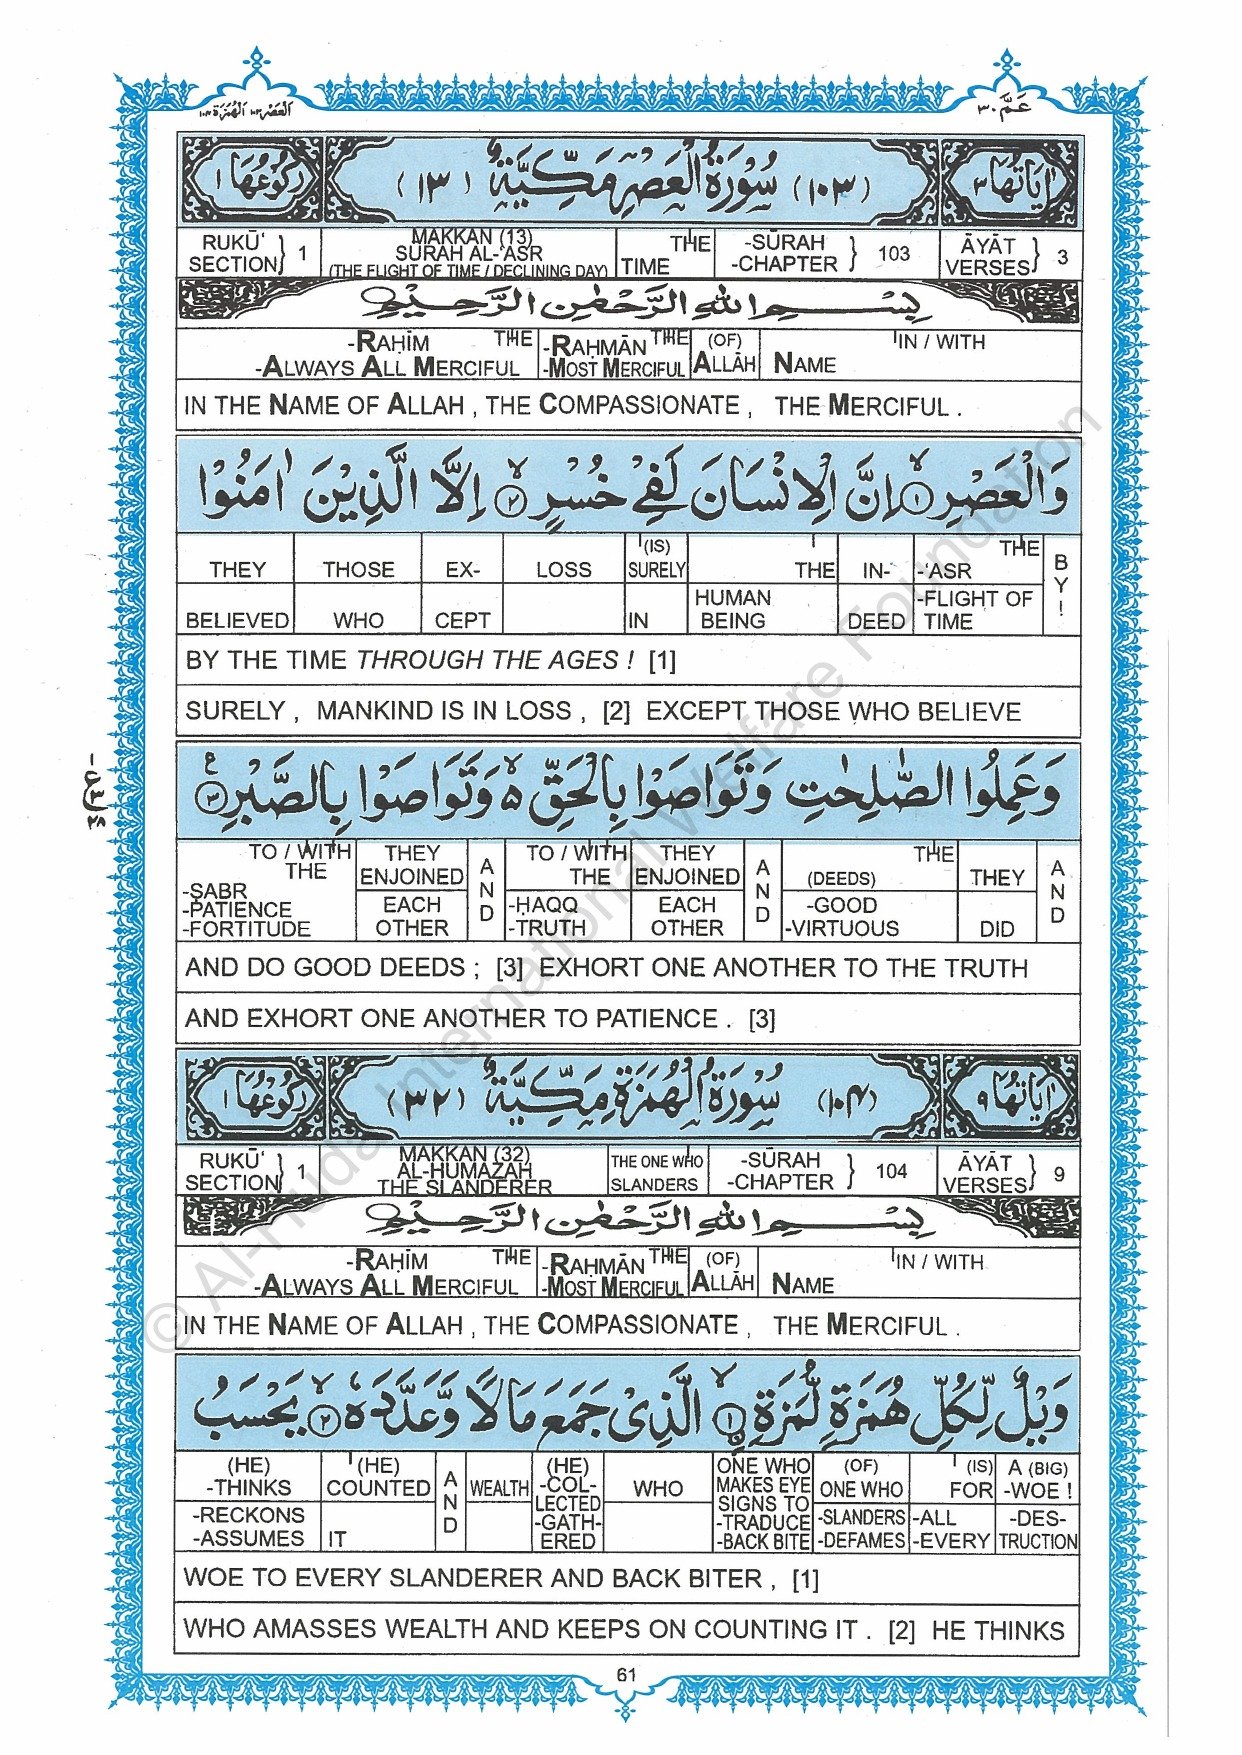 العصر ١٠٣ الهمزة ١٠٤
عَمَّ ٣٠
اٰيَاتُهَا ٣ (١٠٣) سُوْرَةُ الْعَصْرِ مَكِّيَّةٌ (١٣) رُكُوْعُهَا ١
RUKŪ‘ SECTION } 1 MAKKAN (13) SURAH AL-‘ASR (THE FLIGHT OF TIME / DECLINING DAY) THE TIME -SŪRAH -CHAPTER } 103 ĀYĀT VERSES } 3
بِسْمِ اللهِ الرَّحْمٰنِ الرَّحِيْمِ
-RAḤĪM THE -ALWAYS ALL MERCIFUL -RAḤMĀN THE -MOST MERCIFUL (OF) ALLĀH NAME IN / WITH
IN THE NAME OF ALLAH , THE COMPASSIONATE , THE MERCIFUL .
وَالْعَصْرِ ۙ﴿١﴾ اِنَّ الْاِنْسَانَ لَفِيْ خُسْرٍ ۙ﴿٢﴾ اِلَّا الَّذِيْنَ اٰمَنُوْا
THEY THOSE EX- LOSS (IS) SURELY THE IN- THE -‘ASR BY!
BELIEVED WHO CEPT IN HUMAN BEING DEED -FLIGHT OF TIME
BY THE TIME THROUGH THE AGES ! [1]
SURELY , MANKIND IS IN LOSS , [2] EXCEPT THOSE WHO BELIEVE
وَعَمِلُوا الصّٰلِحٰتِ وَتَوَاصَوْا بِالْحَقِّ ۙ٥ وَتَوَاصَوْا بِالصَّبْرِ ﴿٣﴾ ع
TO / WITH THE THEY ENJOINED AND TO / WITH THE THEY ENJOINED AND (DEEDS) THE THEY AND
-ṢABR -PATIENCE -FORTITUDE EACH OTHER -ḤAQQ -TRUTH EACH OTHER -GOOD -VIRTUOUS DID
AND DO GOOD DEEDS ; [3] EXHORT ONE ANOTHER TO THE TRUTH
AND EXHORT ONE ANOTHER TO PATIENCE . [3]
اٰيَاتُهَا ٩ (١٠٤) سُوْرَةُ الْهُمَزَةِ مَكِّيَّةٌ (٣٢) رُكُوْعُهَا ١
RUKŪ‘ SECTION } 1 MAKKAN (32) AL-HUMAZAH THE SLANDERER THE ONE WHO SLANDERS -SŪRAH -CHAPTER } 104 ĀYĀT VERSES } 9
بِسْمِ اللهِ الرَّحْمٰنِ الرَّحِيْمِ
-RAḤĪM THE -ALWAYS ALL MERCIFUL -RAḤMĀN THE -MOST MERCIFUL (OF) ALLĀH NAME IN / WITH
IN THE NAME OF ALLAH , THE COMPASSIONATE , THE MERCIFUL .
وَيْلٌ لِّكُلِّ هُمَزَةٍ لُّمَزَةٍ ۙ﴿١﴾ الَّذِيْ جَمَعَ مَالًا وَّعَدَّدَهٗ ۙ﴿٢﴾ يَحْسَبُ
(HE) -THINKS (HE) COUNTED AND WEALTH (HE) -COL- LECTED -GATH- ERED WHO ONE WHO MAKES EYE SIGNS TO -TRADUCE -BACK BITE (OF) ONE WHO (IS) FOR A (BIG) -WOE !
-RECKONS -ASSUMES IT -SLANDERS -DEFAMES -ALL -EVERY -DES- TRUCTION
WOE TO EVERY SLANDERER AND BACK BITER , [1]
WHO AMASSES WEALTH AND KEEPS ON COUNTING IT . [2] HE THINKS
61
© Al-Huda International Welfare Foundation